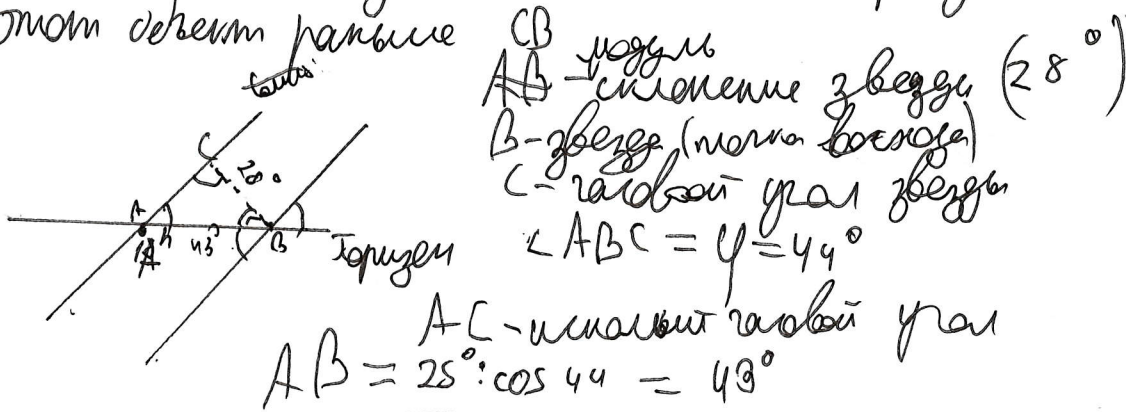 этот объект раньше
CB модуль
~~AB~~ - склонение звезды (28°)
B - звезда (точка восхода)
C - часовой угол звезды
∠ABC = φ = 44°
AC - искомый часовой угол
AB = 25° : cos 44 = 43°
C
A
h
43°
B
Горизон